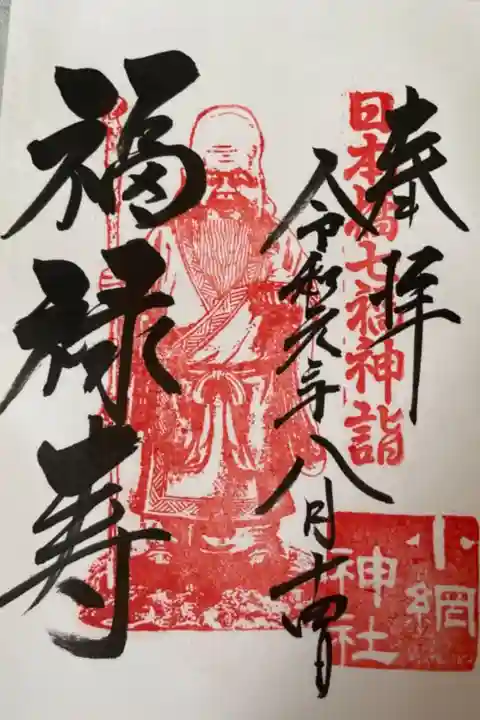 奉拝
日本橋七福神詣
小網
神社
令和元年八月十四日
福禄寿